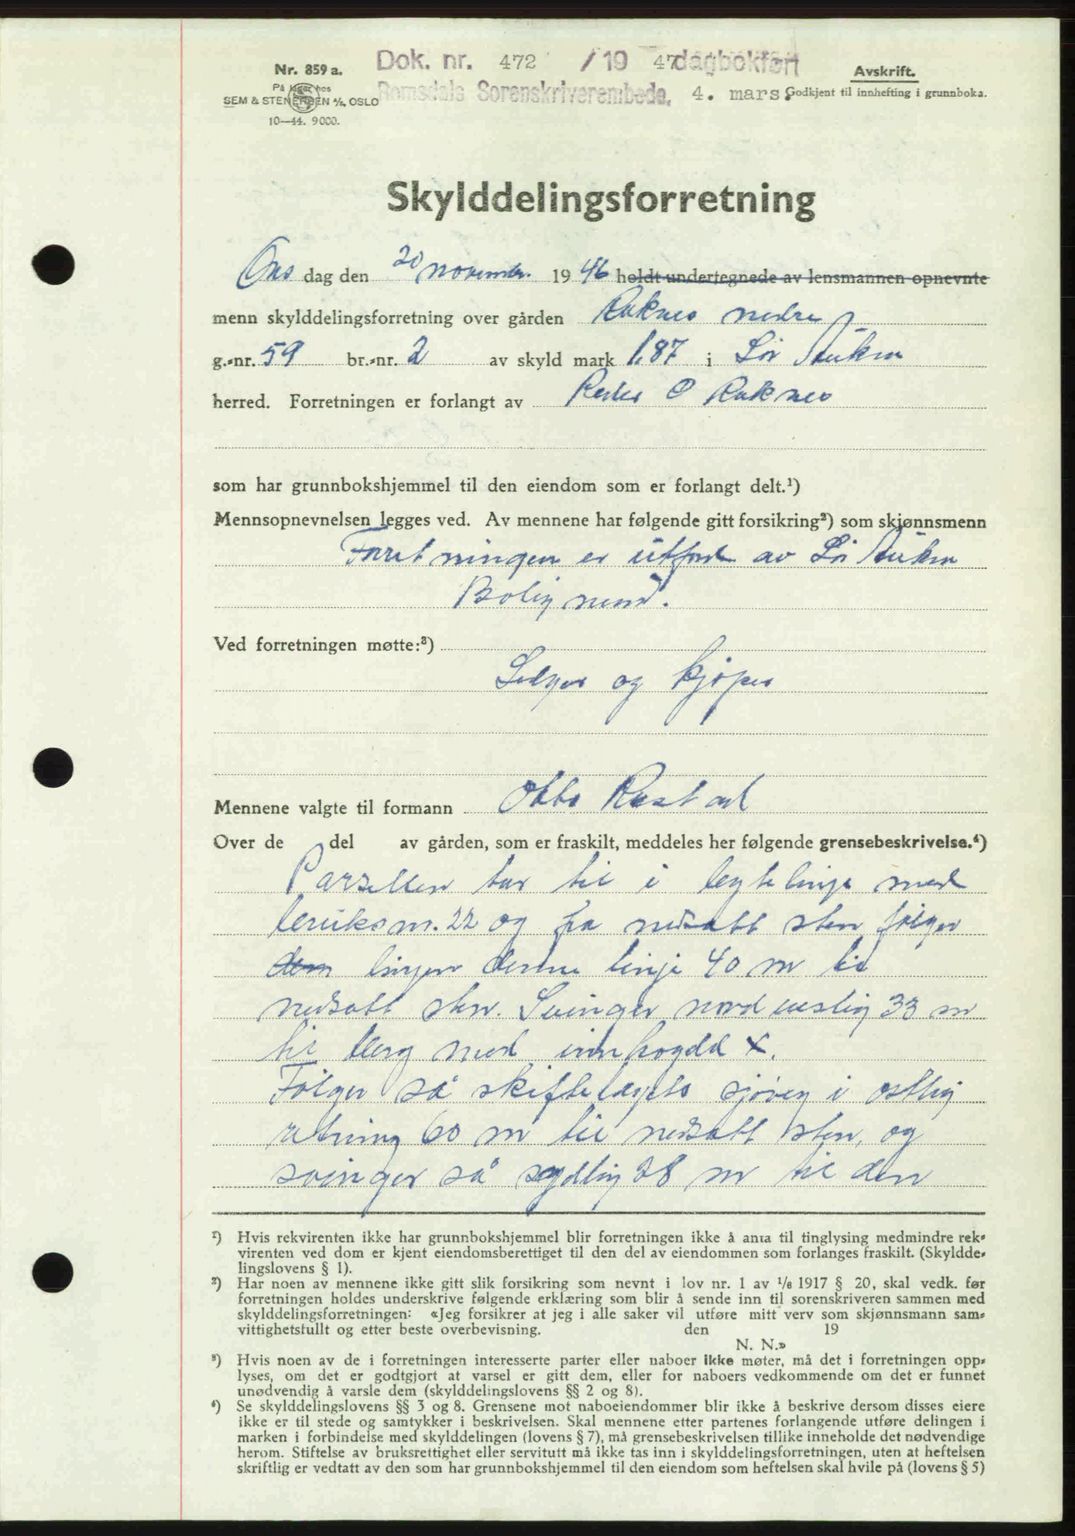 Dok. nr. 472 / 19 47 dagbokført
Nr. 859 a.
Avskrift.
På lager hos
Romsdals Sorenskriverembede, 4. mars.
SEM & STENERSEN A/S, OSLO
Godkjent til innhefting i grunnboka.
10—44. 9000.
Skylddelingsforretning
Ons dag den 20 november 19 46 holdt undertegnede av lensmannen opnevnte
menn skylddelingsforretning over gården Raknes nedre
g.-nr. 59 br.-nr. 2 av skyld mark 1.87 i Sør Aukra
herred. Forretningen er forlangt av Peder O Raknes
som har grunnbokshjemmel til den eiendom som er forlangt delt.¹)
Mennsopnevnelsen legges ved. Av mennene har følgende gitt forsikring²) som skjønnsmenn
Forretningen er utført av Sør Aukra
Bolig nemd.
Ved forretningen møtte:³)
Selger og kjøper
Mennene valgte til formann Otto Rastad
Over de del av gården, som er fraskilt, meddeles her følgende grensebeskrivelse.⁴)
Parsellen tar til i bytelinje med
bruksnr. 22 og fra nedsatt sten følger
dem linjen denne linje 40 m til
nedsatt sten. Svinger nord vestlig 33 m
til berg med innhogdd x.
Følger så skiftelagets sjøveg i østlig
retning 60 m til nedsatt sten, og
svinger så sydlig 28 m til den
¹) Hvis rekvirenten ikke har grunnbokshjemmel blir forretningen ikke å anta til tinglysing medmindre rek-
virenten ved dom er kjent eiendomsberettiget til den del av eiendommen som forlanges fraskilt. (Skyldde-
lingslovens § 1).
²) Har noen av mennene ikke gitt slik forsikring som nevnt i lov nr. 1 av 1/6 1917 § 20, skal vedk. før
forretningen holdes underskrive følgende erklæring som blir å sende inn til sorenskriveren sammen med
skylddelingsforretningen: «Jeg forsikrer at jeg i alle saker vil utføre mitt verv som skjønnsmann sam-
vittighetsfullt og etter beste overbevisning. den 19
N. N.»
³) Hvis noen av de i forretningen interesserte parter eller naboer ikke møter, må det i forretningen opp-
lyses, om det er godtgjort at varsel er gitt dem, eller for naboers vedkommende om det er funnet
unødvendig å varsle dem (skylddelingslovens §§ 2 og 8).
⁴) Se skylddelingslovens §§ 3 og 8. Grensene mot naboeiendommer blir ikke å beskrive dersom disses eiere
ikke er til stede og samtykker i beskrivelsen. Skal mennene etter partenes forlangende utføre delingen i
marken i forbindelse med skylddelingen (lovens § 7), må grensebeskrivelsen tillike inneholde det nødvendige
herom. Stiftelse av bruksrettighet eller servitutt må ikke tas inn i skylddelingsforretningen, uten at heftelsen
skriftlig er vedtatt av den som har grunnbokshjemmel til den eiendom som heftelsen skal hvile på (lovens § 5)